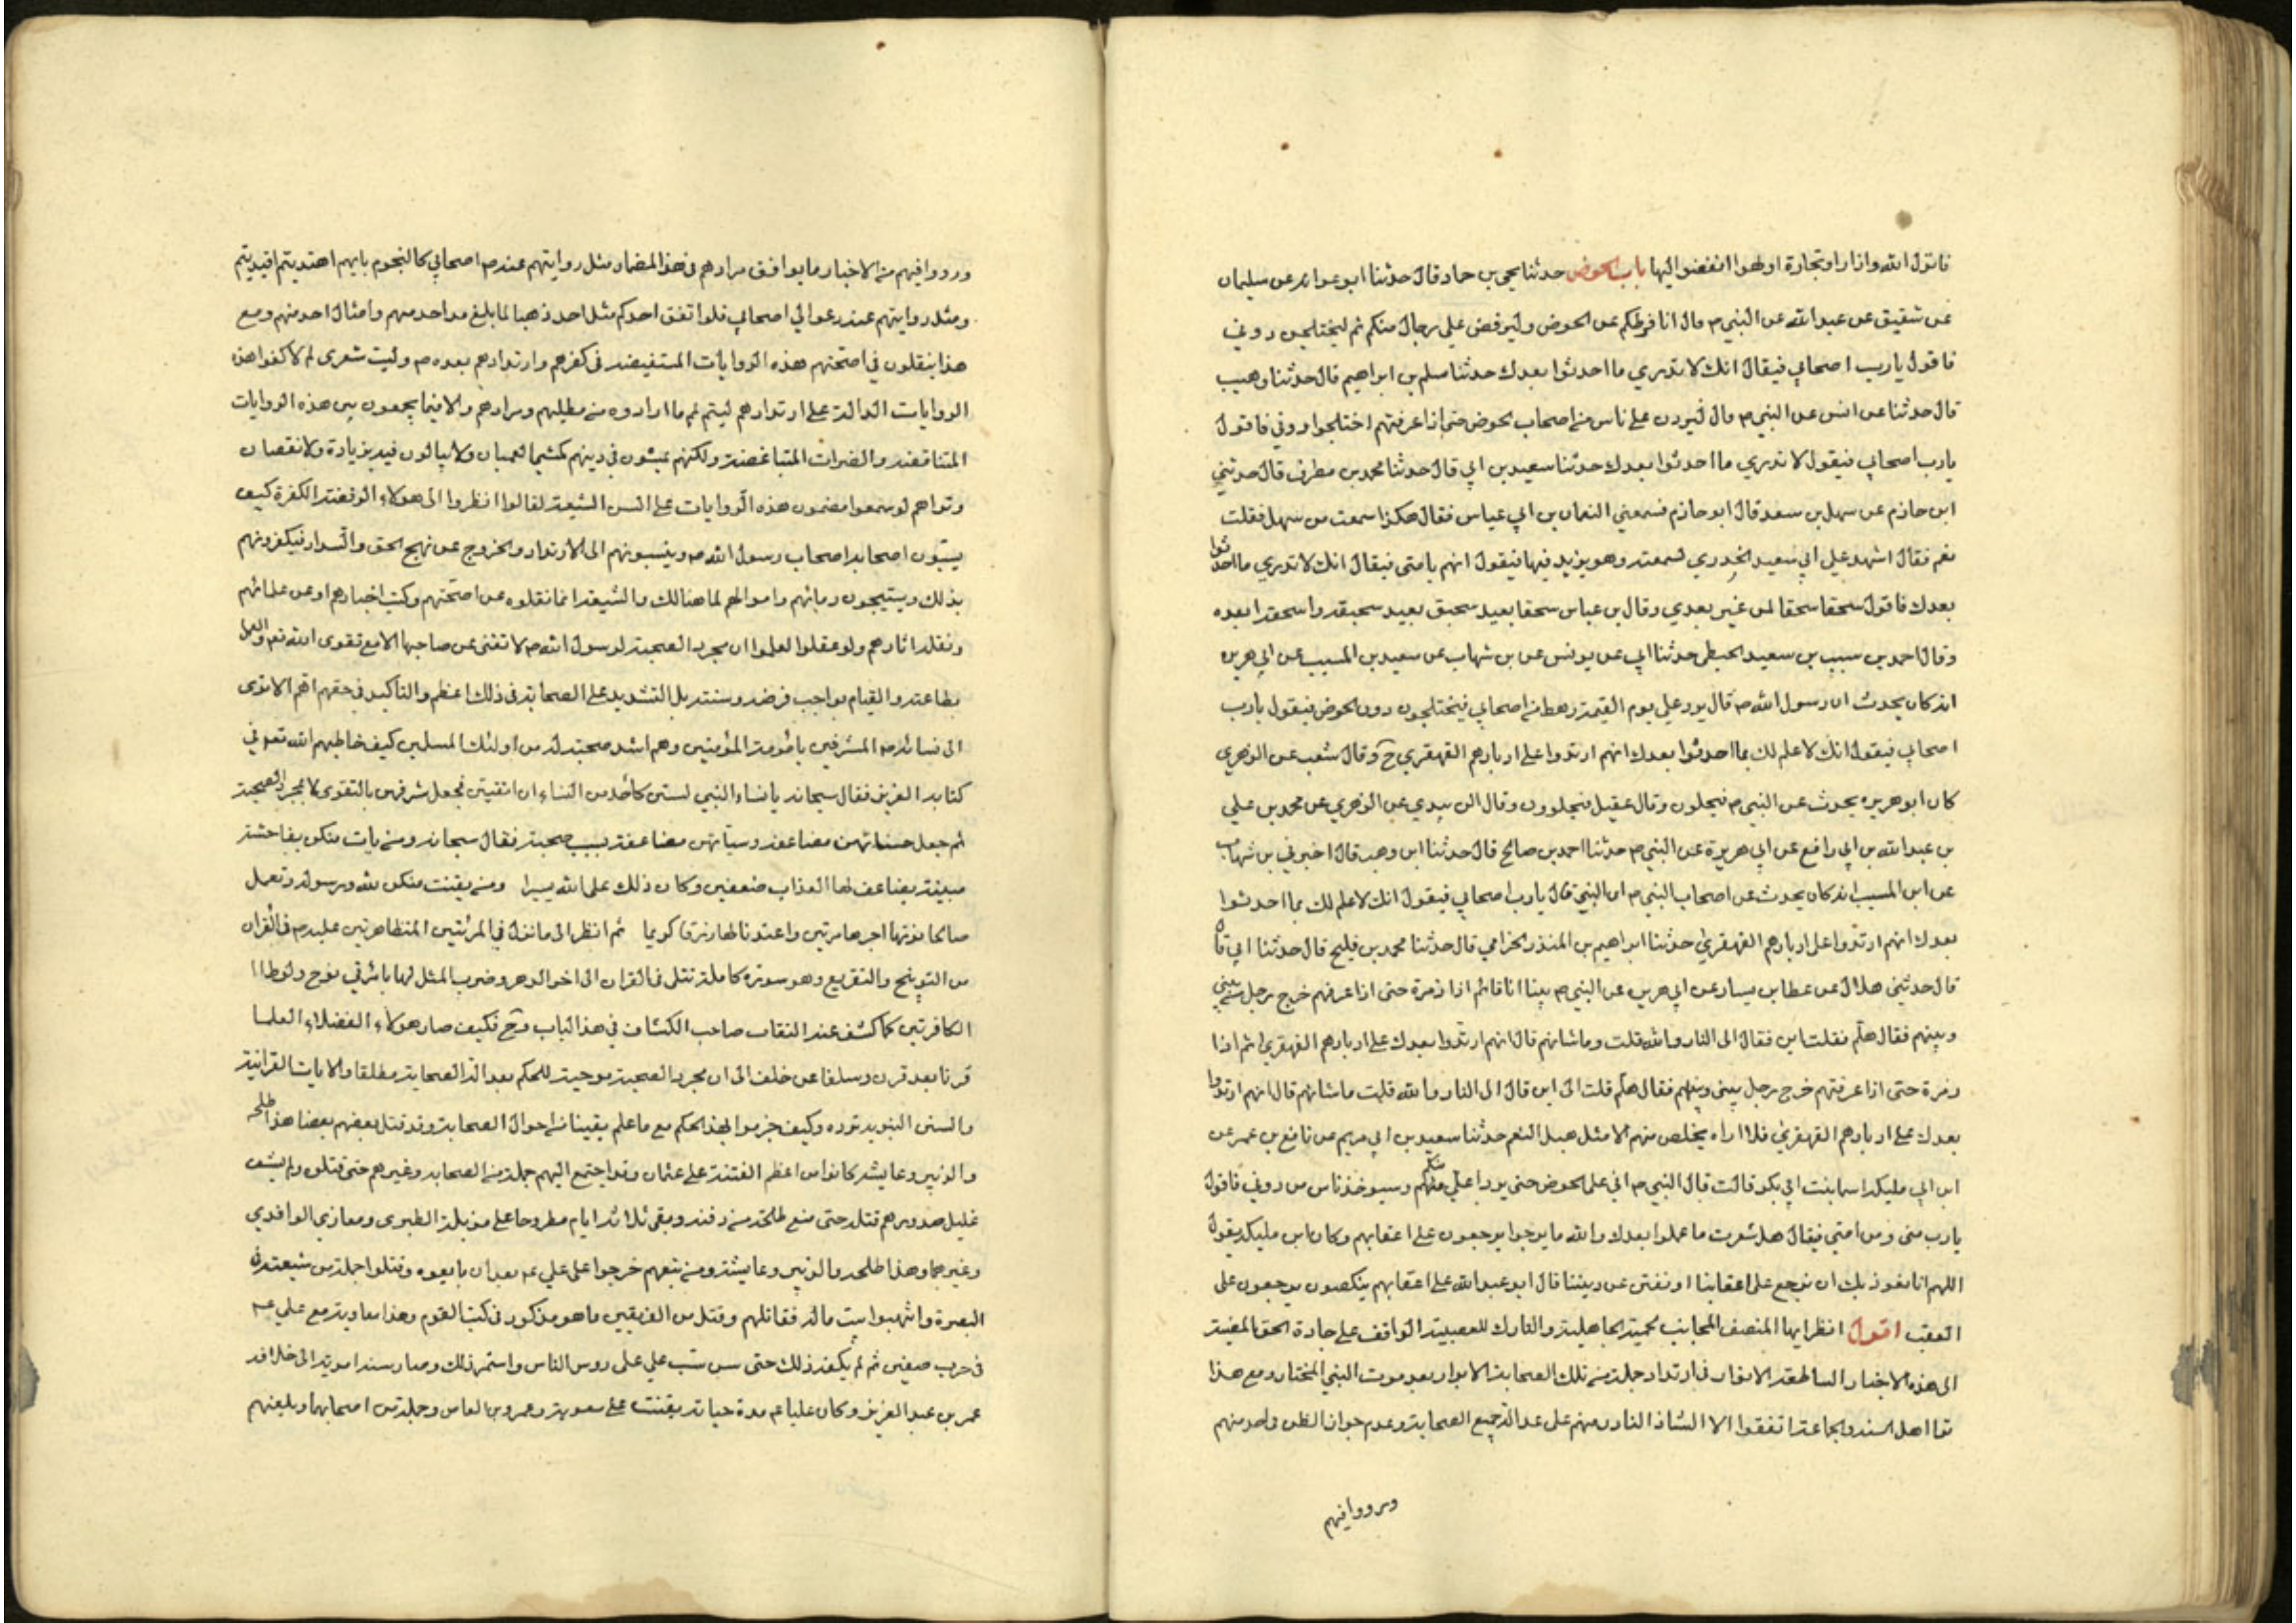 فانزل الله واذا راوتجارة اولهوا انفضوا اليها باب الحوض حدثنا يحيى بن حماد قال حدثنا ابو عوانه عن سليمان
عن شقيق عن عبد الله عن النبي ص قال انا فرطكم عن الحوض وليرفض علي رجال منكم ثم ليختلجن دوني
فاقول يارب اصحابي فيقال انك لا تدري ما احدثوا بعدك حدثنا مسلم بن ابراهيم قال حدثنا وهيب
قال حدثنا عن انس عن النبي ص قال ليردن على ناس من اصحاب حوض حتى اذا عرفتهم اختلجوا دوني فاقول
يارب اصحابي فيقول لا تدري ما احدثوا بعدك حدثنا سعيد بن ابي قال حدثنا محمد بن مطرف قال حدثني
ابن حازم عن سهل بن سعد قال ابو حازم فسمعني النعمان بن ابي عياس فقال هكذا سمعت من سهل فقلت
نعم فقال اشهد علي ابي سعيد الخدري لسمعته وهو يزيد فيها فيقول انهم يا متى فيقال انك لا تدري ما احدثوا
بعدك فاقول سحقا سحقا لمن غير بعدي وقال بن عباس سحقا بعيد سحيق بعيد سحيقه واسحقه ابعده
وقال احمد بن سبيب بن سعيد الحبطى حدثنا ابي عن يونس عن بن شهاب عن سعيد بن المسيب عن ابي هريره
انه كان يحدث ان رسول الله ص قال يرد علي يوم القيمة رهط من اصحابي فيختلجون دون الحوض فيقول يارب
اصحابي فيقول انك لا علم لك بما احدثوا بعدك انهم ارتدوا على ادبارهم القهقري ح وقال شعب عن الزهري
كان ابو هريره يحدث عن النبي ص فيجلون وقال عقيل فيجلوون وقال الزبيدي عن الزهري عن محمد بن علي
بن عبد الله بن ابي رافع عن ابي هريرة عن النبي ص حدثنا احمد بن صالح قال حدثنا ابن وهب قال اخبرني بن شهاب
عن ابن المسيب انه كان يحدث عن اصحاب النبي ص ان النبي قال يارب اصحابي فيقول انك لا علم لك بما احدثوا
بعدك انهم ارتدوا على ادبارهم القهقرى حدثنا ابراهيم بن المنذر الحزامي قال حدثنا محمد بن فليح قال حدثنا ابي قال
قال حدثني هلال عن عطا بن يسار عن ابي هريره عن النبي ص بينا انا قائم اذا زمرة حتى اذا عرفتهم خرج رجل من بيني
وبينهم فقال هلم فقلت اين فقال الى النار والله قلت وما شانهم قال انهم ارتدوا بعدك على ادبارهم القهقرى ثم اذا
زمرة حتى اذا عرفتهم خرج رجل بيني وبينهم فقال هلم قلت الى اين قال الى النار والله قلت ما شانهم قال انهم ارتدوا
بعدك على ادبارهم القهقرى فلا اراه يخلص منهم الا مثل همل النعم حدثنا سعيد بن ابي مريم عن نافع بن عمر عن
ابن ابي مليكه اسما بنت ابي بكر قالت قال النبي ص اني على الحوض حتى يورد اعلي منكم وسيوخذ ناس من دوني فاقول
يارب منى ومن امتي فيقال هل شعرت ما عملوا بعدك والله ما برحوا يرجعون على اعقابهم وكان ابن مليكه يقول
اللهم انا نعوذ بك ان نرجع على اعقابنا او نفتن عن ديننا قال ابو عبد الله على اعقابهم ينكصون يرجعون على
العقب اقول انظر ايها المنصف المجانب لحمية الجاهلية والتارك للعصبية الواقف على جادة الحق المضيئه
الى هذه الاخبار الساطعة الانوار في ارتداد جملة من تلك الصحابة الابرار بعد موت النبي المختار ومع هذا
ترا اهل السنه والجماعة اتفقوا الا الشاذ النادر منهم على عدالة جميع الصحابة وعدم جواز الطعن واحد منهم
ورووا فيهم
ورووا فيهم من الاخبار ما يوافق مرادهم في هذا المضمار مثل روايتهم عنه ص اصحابي كالنجوم بايهم اهتديتم اقتديتم
ومثل روايتهم عنه دعوا لي اصحابي فلو انفق احدكم مثل احد ذهبا لما بلغ مد احد منهم وامثال احد منهم ومع
هذا ينقلون في اصحتهم هذه الروايات المستفيضه في كفرهم وارتدادهم بعده ص وليت شعري لم لا كفوا هذه
الروايات الدالة على ارتدادهم ليتم لهم ما ارادوه من مطلبهم ومرادهم والا فيما يجمعون بين هذه الروايات
المتناقضه والضرات المتباغضة ولكنهم يمشون في دينهم كمشي العميان ولا يبالون فيه بزيادة ولا نقصان
وتراهم لو سمعوا مضمون هذه الروايات على السن الشيعة لقالوا انظروا الى هولاء الرفضة الكفرة كيف
يسبون اصحابه اصحاب رسول الله ص وينسبونهم الى الارتداد والخروج عن نهج الحق والسداد فيكفرونهم
بذلك ويستبيحون دمائهم واموالهم لما هنالك والشيعه انما نقلوه من اصحتهم وكتب اخبارهم وعن علمائهم
ونقلة اثارهم ولو عقلوا لعلموا ان مجرد الصحبة لرسول الله ص لا تغنى عن صاحبها الا مع تقوى الله تع والعمل
بطاعته والقيام بواجب فرضه وسنته بل التشديد على الصحابة في ذلك اعظم والتاكيد في حقهم اتم الا ترى
الى نسائه ص المشرفين بامومة المؤمنين وهم اشد صحبة له من اولئك المسلمين كيف خاطبهم الله تع في
كتابه العزيز فقال سبحانه يا نساء النبي لستن كاحد من النساء ان اتقيتن فجعل شرفهن بالتقوى لا بمجرد الصحبة
ثم جعل حسناتهن مضاعفه وسيئاتهن مضاعفة بسبب صحبته فقال سبحانه ومن يات منكن بفاحشة
مبينة يضاعف لها العذاب ضعفين وكان ذلك على الله يسيرا ومن يقنت منكن لله ورسوله وتعمل
صالحا نؤتها اجرها مرتين واعتدنا لها رزقا كريما ثم انظر الى ما نزل في المرئتين المتظاهرتين عليه ص في القران
من التوبيخ والتقريع وهو سورة كاملة تتلى في القران الى اخر الدهر وضرب المثل لهما بامرأتي نوح ولوطا ا
الكافرتين كما كشف عنه النقاب صاحب الكشاف في هذا الباب وح فكيف صار هولاء الفضلاء العلما
قرنا بعد قرن وسلفا عن خلف الى ان مجرد الصحبة موجبة للحكم بعدالة الصحابة مطلقا والايات القرانية
والسنن النبويه ترده وكيف جزموا بهذا الحكم مع ما علم يقينا من احوال الصحابة وقد قتل بعضهم بعضا هذا طلحه
والزبير وعايشه كانوا من اعظم الفتنة على عثمان وقد اجتمع اليهم جملة من الصحابه وغيرهم حتى قتلوه ولم يشف
غليل صدورهم قتله حتى منع طلحة من دفنه وبقى ثلاثة ايام مطروحا على مزبلة الطبرى ومغازي الواقدي
وغيرهما وهذا طلحه والزبير وعايشة ومن تبعهم خرجوا على علي عم بعد ان بايعوه وقتلوا جملة من شيعته في
البصرة وانتهبوا بيت ماله فقاتلهم وقتل من الفريقين ما هو مذكور في كتب القوم وهذا معاوية مع علي عم
في حرب صفين ثم لم يكفه ذلك حتى سن سب علي على روس الناس واستمر ذلك وصار سنة امويه الى خلافة
عمر بن عبد العزيز وكان عليا عم مدة حياته يقنت على معويه وعمرو بن العاص وجملة من اصحابهما ويلعنهم